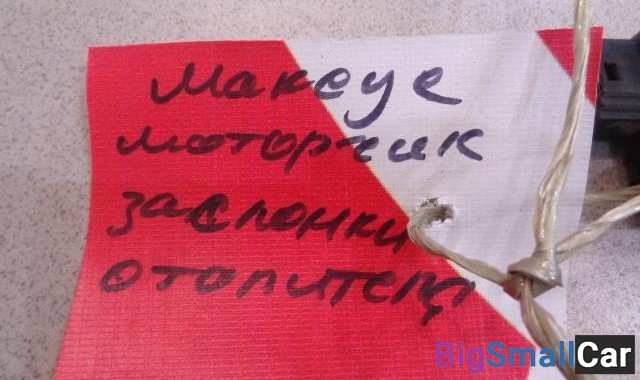 Максус
моторчик
заслонки
отопителя
BigSmallCar